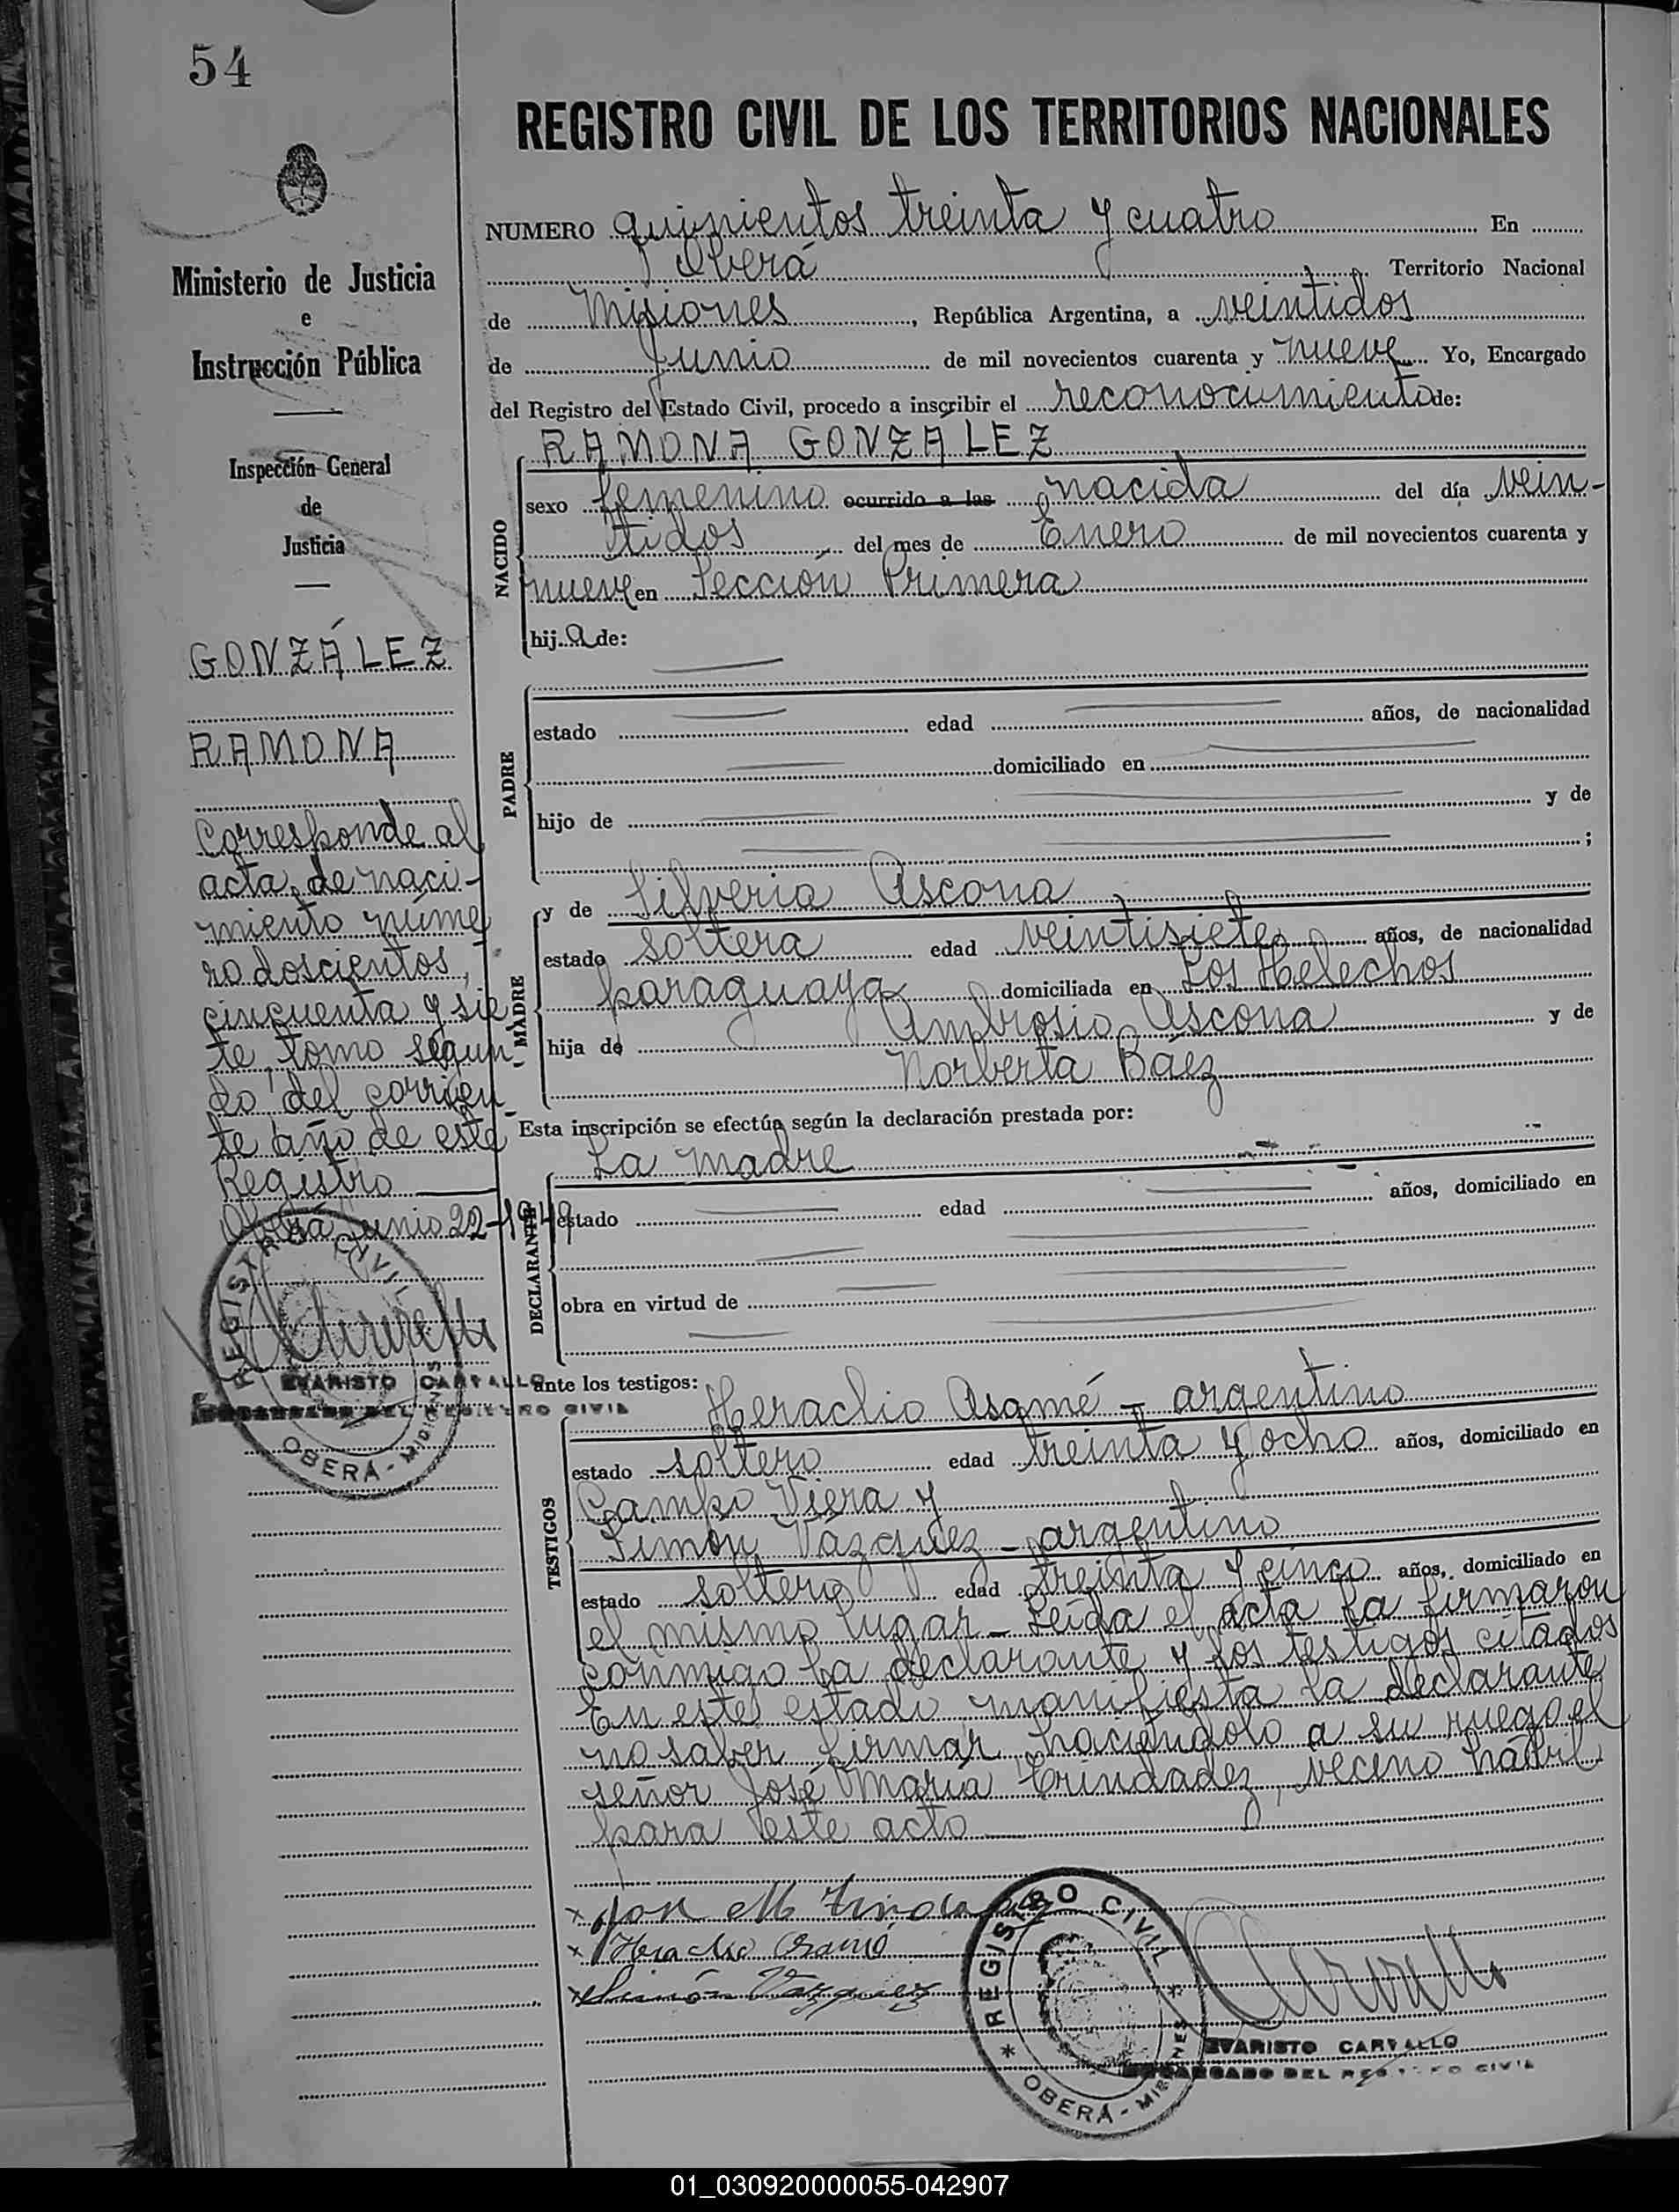 54
Ministerio de Justicia
e
Instrucción Pública
Inspección General
de
Justicia
GONZÁLEZ
RAMONA
Corresponde al
acta de naci-
miento núme
ro doscientos
cincuenta y sie
te, tomo segun
do del corrien-
te año de este
Registro
Oberá Junio 22-1949
REGISTRO CIVIL
OBERÁ - MISIONES
EVARISTO CARVALLO
ENCARGADO DEL REGISTRO CIVIL
REGISTRO CIVIL DE LOS TERRITORIOS NACIONALES
NUMERO quinientos treinta y cuatro En
Oberá Territorio Nacional
de Misiones, República Argentina, a veintidos
de Junio de mil novecientos cuarenta y nueve Yo, Encargado
del Registro del Estado Civil, procedo a inscribir el reconocimiento de:
RAMONA GONZALEZ
NACIDO
sexo femenino ocurrido a las nacida del día vein-
tidos del mes de Enero de mil novecientos cuarenta y
nueve en Sección Primera
hij a de:
PADRE
estado edad años, de nacionalidad
domiciliado en
hijo de y de
;
MADRE
y de Silveria Ascona
estado soltera edad veintisiete años, de nacionalidad
paraguaya domiciliada en Los Helechos
hija de Ambrosio Ascona y de
Norberta Báez
Esta inscripción se efectúa según la declaración prestada por:
La madre
DECLARANTE
estado edad años, domiciliado en
obra en virtud de
ante los testigos:
TESTIGOS
Heraclio Asamé - argentino
estado soltero edad treinta y ocho años, domiciliado en
Campo Viera y
Simón Vázquez - argentino
estado soltero edad treinta y cinco años, domiciliado en
el mismo lugar - Leída el acta la firmaron
conmigo la declarante y los testigos citados
En este estado manifiesta la declarante
no saber firmar haciéndolo a su ruego el
señor José María Trindadez, vecino hábil
para este acto
x José M Trindadez
x Heraclio
x Simón Vazquez
REGISTRO CIVIL
OBERÁ - MISIONES
EVARISTO CARVALLO
ENCARGADO DEL REGISTRO CIVIL
01_030920000055-042907